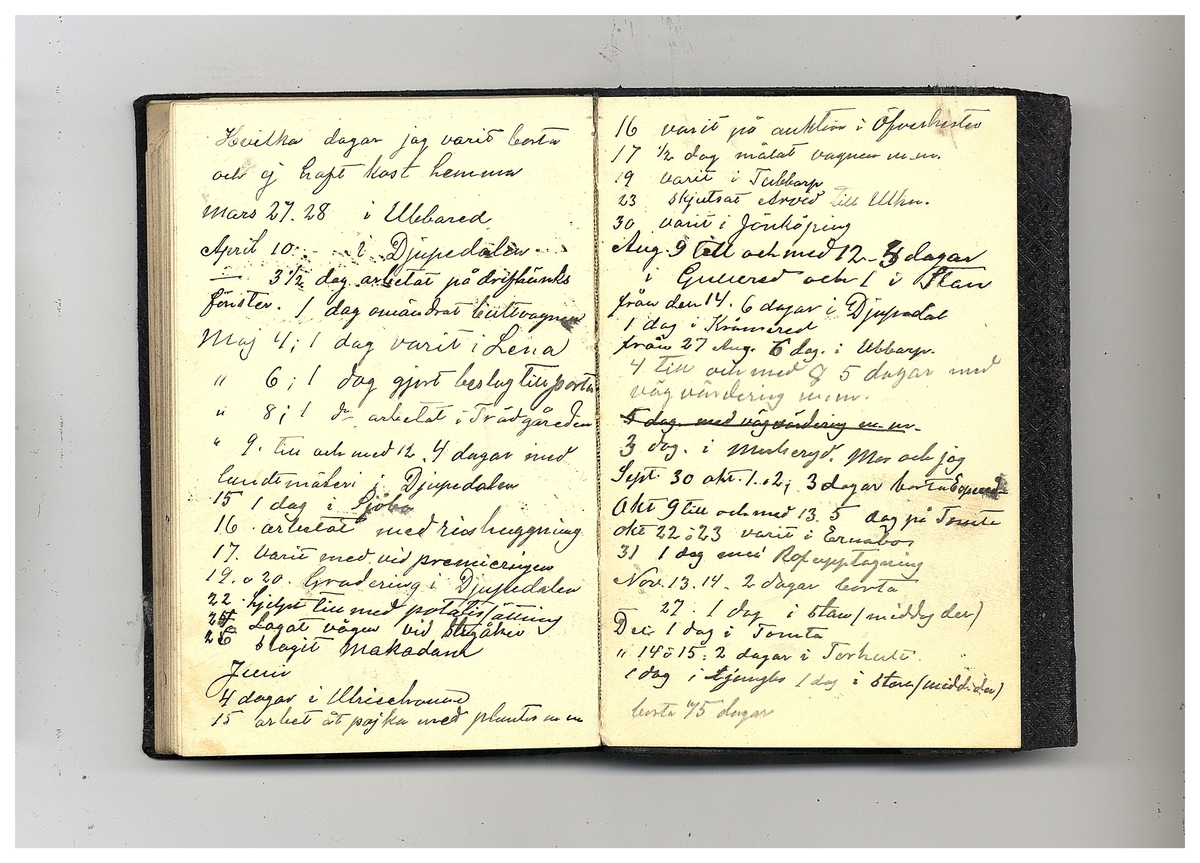 Hvilka dagar jag varit borta
och ej haft kost hemma
Mars 27. 28 i Ubbared
April 10 i Djupedalen
— 3 1/2 dag arbetat på drifbänks
fönster. 1 dag omändrat
Maj 4; 1 dag varit i Lena
" 6; 1 dag gjort beslag till porta
" 8; 1 d:o arbetat i Trädgården
" 9. till och med 12. 4 dagar med
landtmäteri i Djupedalen
15 1 dag i Sjöbo
16. arbetat med rishuggning
17. Varit med vid premieringen
19. o 20. Gradering i Djupedalen
22. hjelpt till med potatissättning
Lagat vägen vid
slagit Makadam
Juni
4 dagar i Ulricehamn
15 arbet åt pojka med plantor m m
16 varit på auktion i Öfverhester
17 1/2 dag målat vagnen m.m.
19 varit i Tubbarp
23 skjutsat Arvid till Ulhn.
30 varit i Jönköping
Aug. 9 till och med 12 - 3 dagar
i Gullered och 1 i Stan
från den 14. 6 dagar i Djupedal
1 dag i
från 27 Aug. 6 dag. i Ubbarp.
4 till och med 8 5 dagar med
vägvärdering m.m.
5 dag. med vägvärdering m.m.
3 dag. i Mulseryd. Mor och jag
Sept. 30 okt. 1. o 2; 3 dagar borta
Okt 9 till och med 13. 5 dag på Tomta
okt 22 o 23 varit i
31 1 dag med Rofupptagning
Nov. 13. 14. 2 dagar borta
27. 1 dag i stan (middag der)
Dec 1 dag i Tomta
" 14 o 15: 2 dagar i Torhult.
1 dag i 1 dag i stan (midd. der)
borta 75 dagar